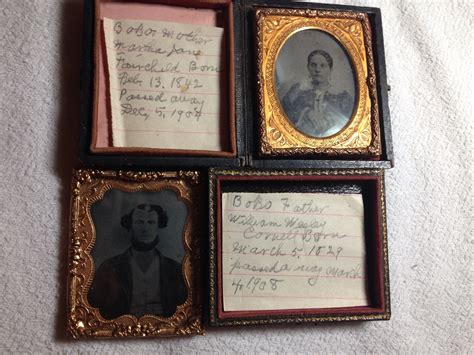 Bobs Mother
Martha Jane
Fairchild Born
Feb. 13. 1842
Passed away
Dec, 5, 1904
Bobs Father
William Wesley
Cornell Born
March 5, 1829
passed away March
4, 1908